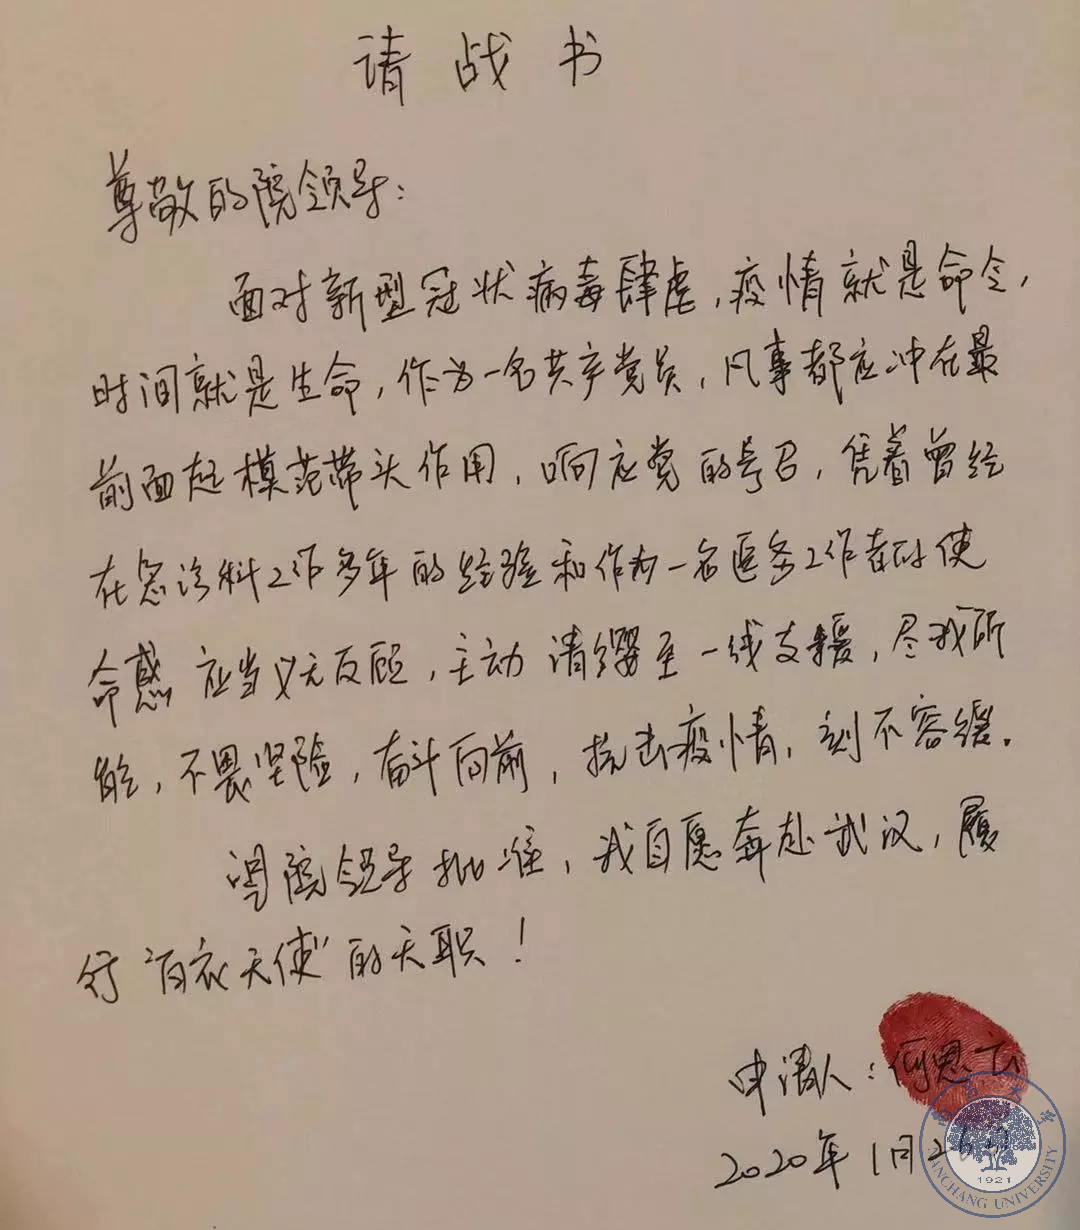 请战书
尊敬的院领导:
面对新型冠状病毒肆虐,疫情就是命令,
时间就是生命,作为一名共产党员,凡事都应冲在最
前面起模范带头作用,响应党的号召,凭着曾经
在急诊科工作多年的经验和作为一名医务工作者的使
命感应当义无反顾,主动请缨至一线支援,尽我所
能,不畏坚险,奋斗向前,抗击疫情,刻不容缓。
望院领导批准,我自愿奔赴武汉,履
行“白衣天使”的天职!
申请人:何恩
2020年1月26日
1921
NANCHANG UNIVERSITY